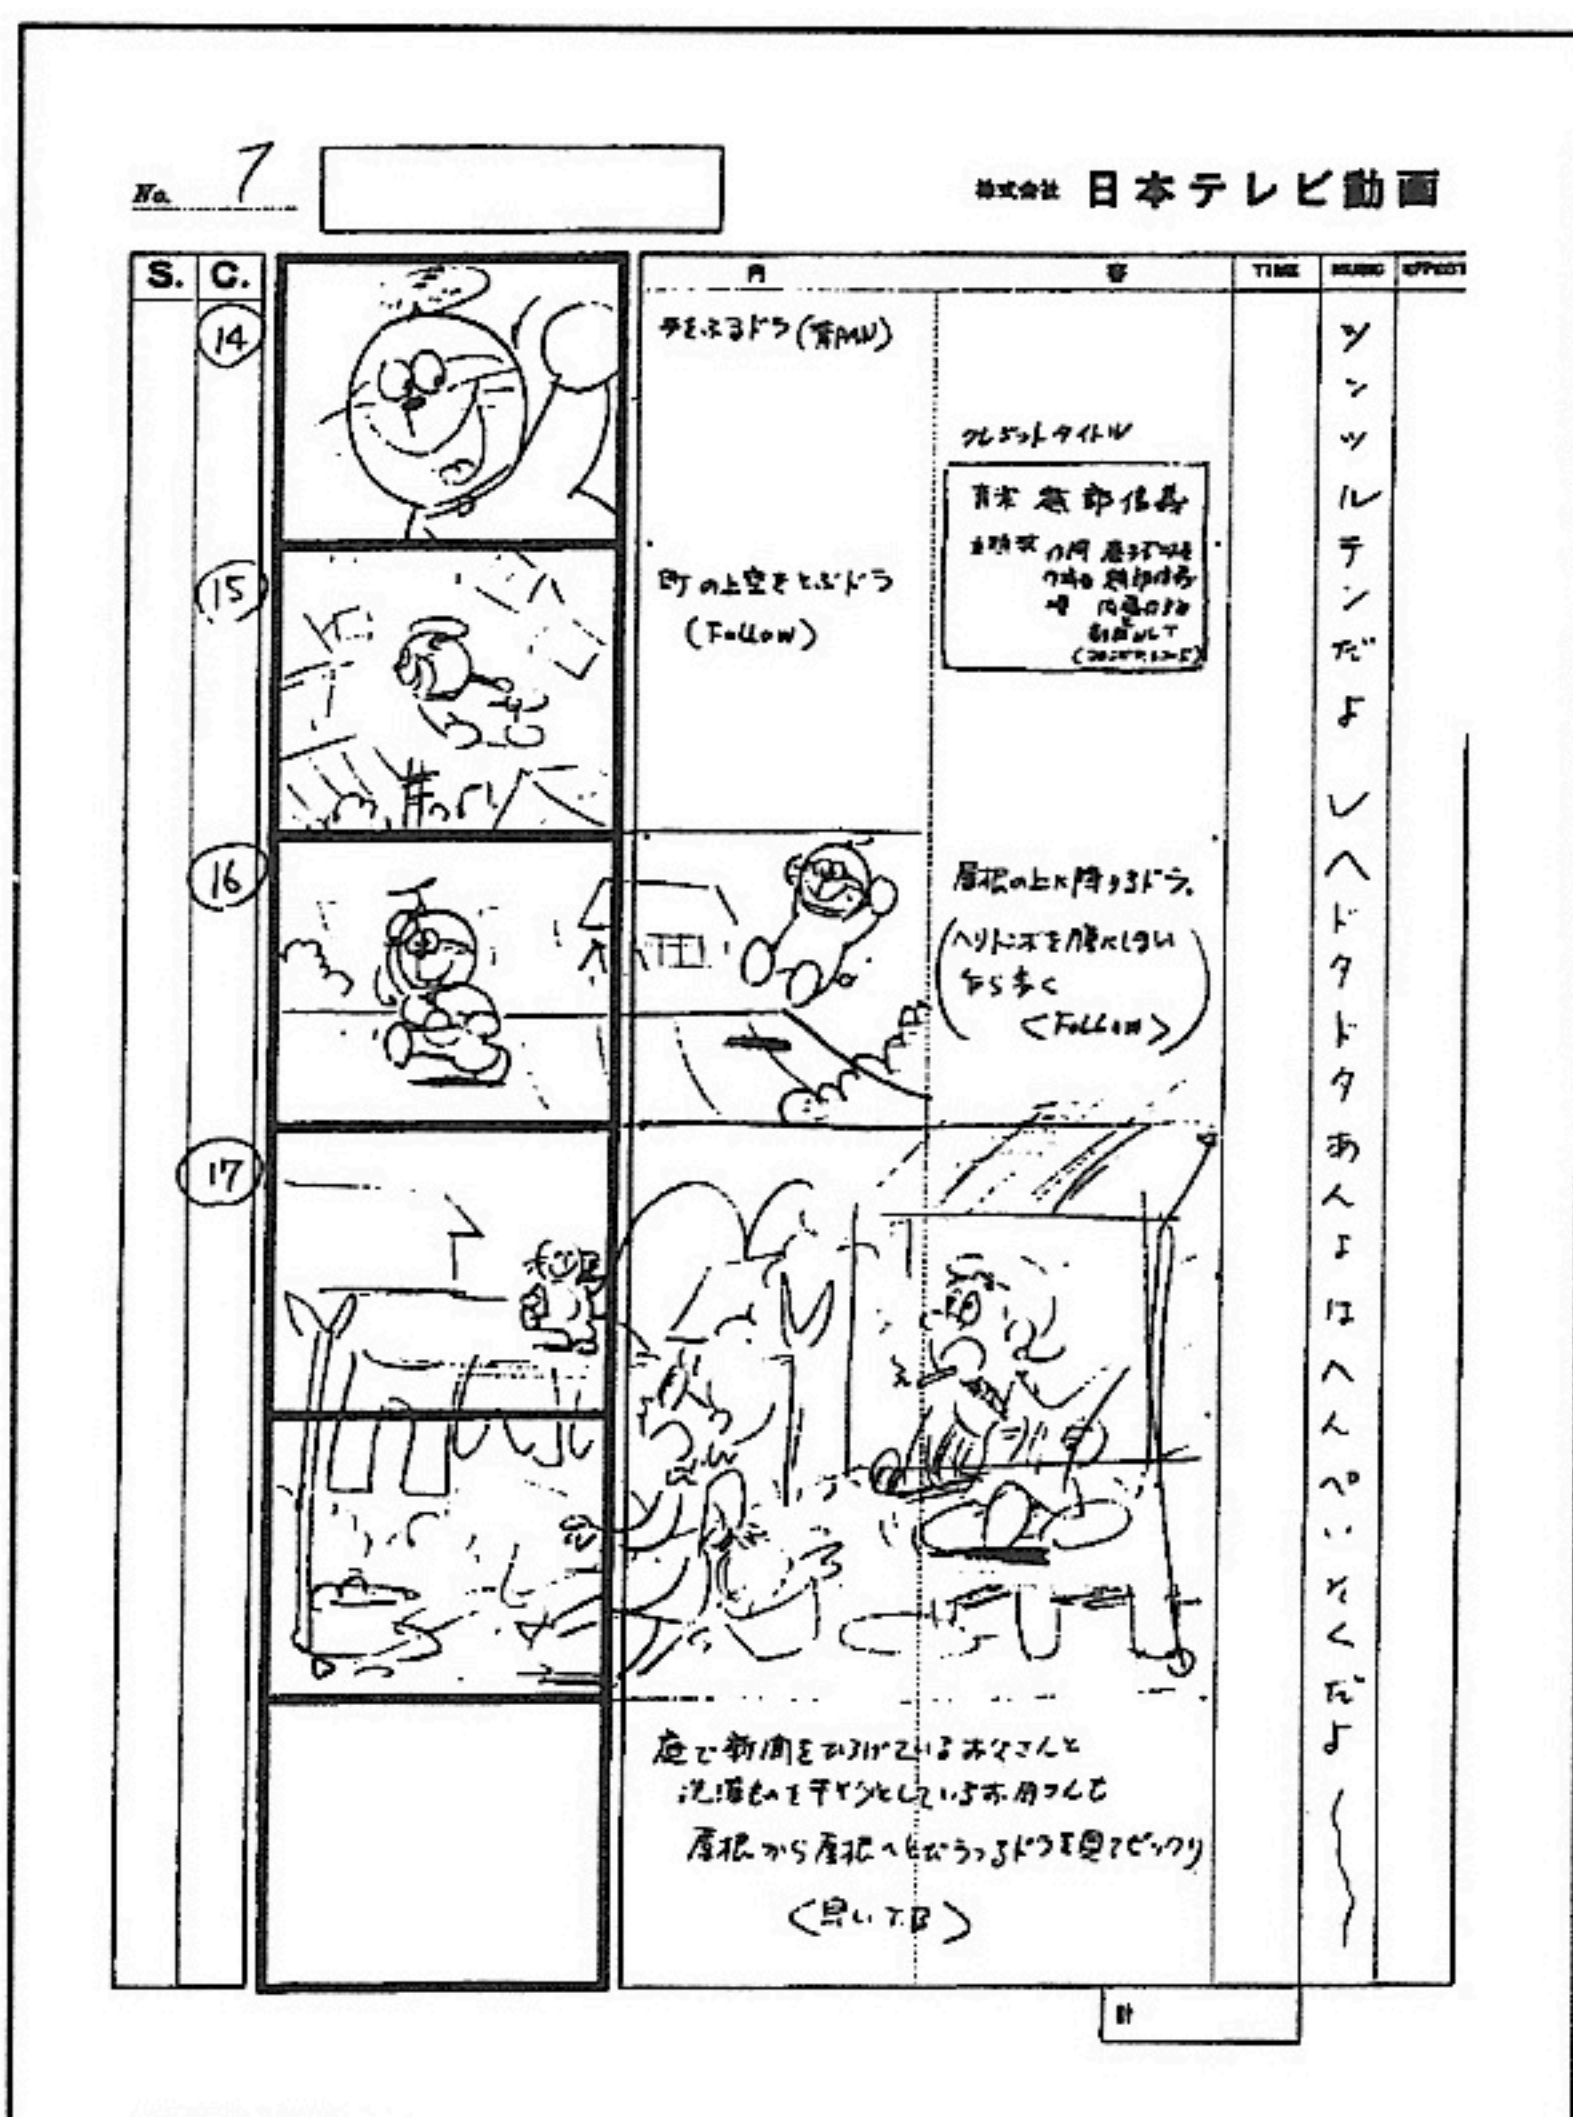 No. 7
株式会社 日本テレビ動画
S. C. 内 容 TIME MUSIC EFFECT
14
手をふるドラ(背PAN)
クレジットタイトル
音楽 越部信義
主題歌
15
町の上空をとぶドラ
(Follow)
16
屋根の上に降りるドラ。
ヘリトンボを腹にしまい
乍ら歩く
<Follow>
17
庭で新聞をひろげているお父さんと
洗濯ものを干そうとしているお母さんも
屋根から屋根へとびうつるドラを見てビックリ
<早いT.B>
ツンツルテンだよ レヘドタドタ あんよはへんぺいそくだよ
計